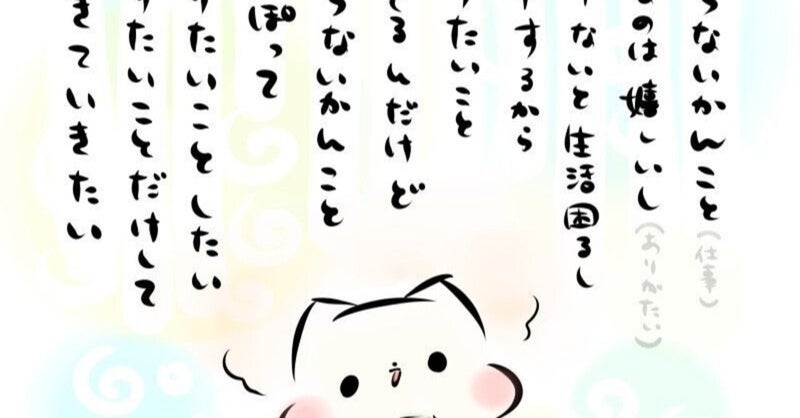 らないかんこと(仕事)
のは嬉しいし(ありがたい)
ないと生活困るし
するから
りたいこと
るんだけど
らないかんこと
ぽって
りたいことしたい
りたいことだけして
きていきたい